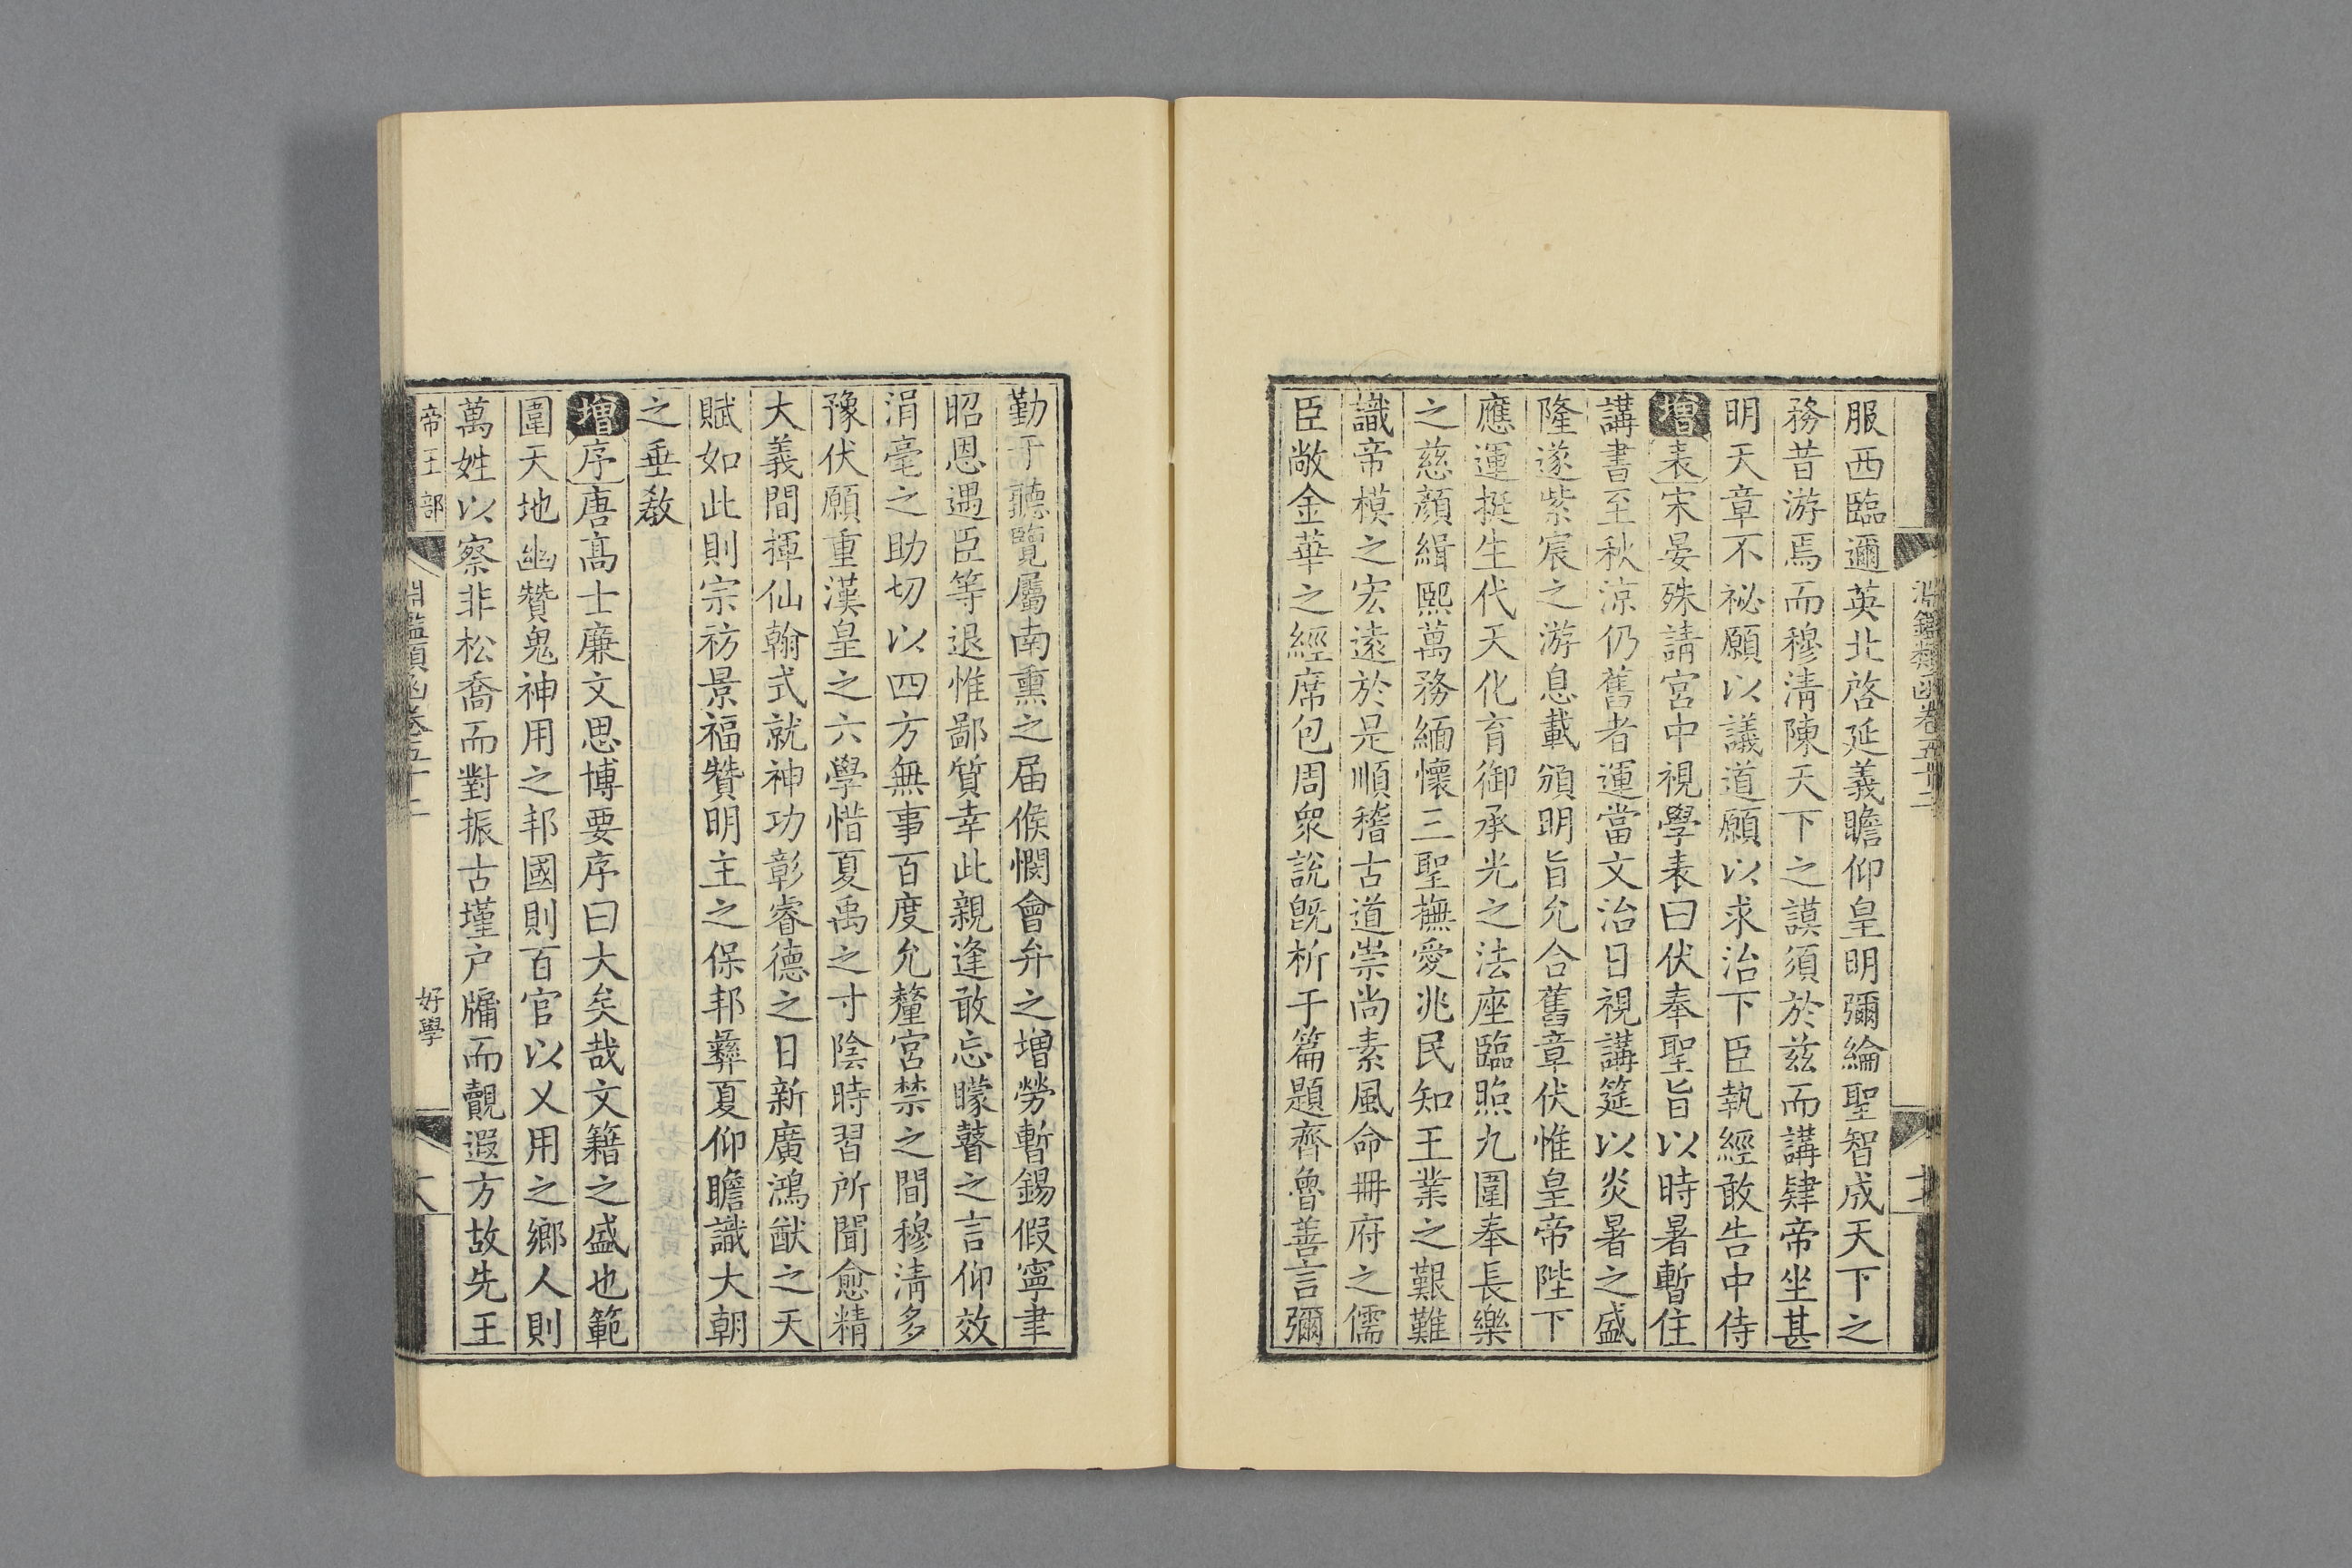 淵鑑類函卷五十二
服西臨邇英北啓延義瞻仰皇明彌綸聖智成天下之
務昔游焉而穆清陳天下之謨須於茲而講肄帝坐甚
明天章不祕願以議道願以求治下臣執經敢告中侍
增表宋晏殊請宮中視學表曰伏奉聖旨以時暑暫住
講書至秋涼仍舊者運當文治日視講筵以炎暑之盛
隆遂紫宸之游息載頒明旨允合舊章伏惟皇帝陛下
應運挺生代天化育御承光之法座臨照九圍奉長樂
之慈顏緝熙萬務緬懷三聖撫愛兆民知王業之艱難
識帝模之宏遠於是順稽古道崇尚素風命冊府之儒
臣敞金華之經席包周衆說旣析于篇題齊魯善言彌
勤于聽覽屬南熏之届候憫會弁之增勞暫錫假寧聿
昭恩遇臣等退惟鄙質幸此親逢敢忘矇瞽之言仰效
涓毫之助切以四方無事百度允釐宮禁之間穆清多
豫伏願重漢皇之六學惜夏禹之寸陰時習所聞愈精
大義間揮仙翰式就神功彰睿德之日新廣鴻猷之天
賦如此則宗祊景福贊明主之保邦彝夏仰瞻識大朝
之垂敎
增序唐高士廉文思博要序曰大矣哉文籍之盛也範
圍天地幽贊鬼神用之邦國則百官以乂用之鄉人則
萬姓以察非松喬而對振古墐户牖而覿遐方故先王
帝王部
淵鑑類函卷五十二
好學